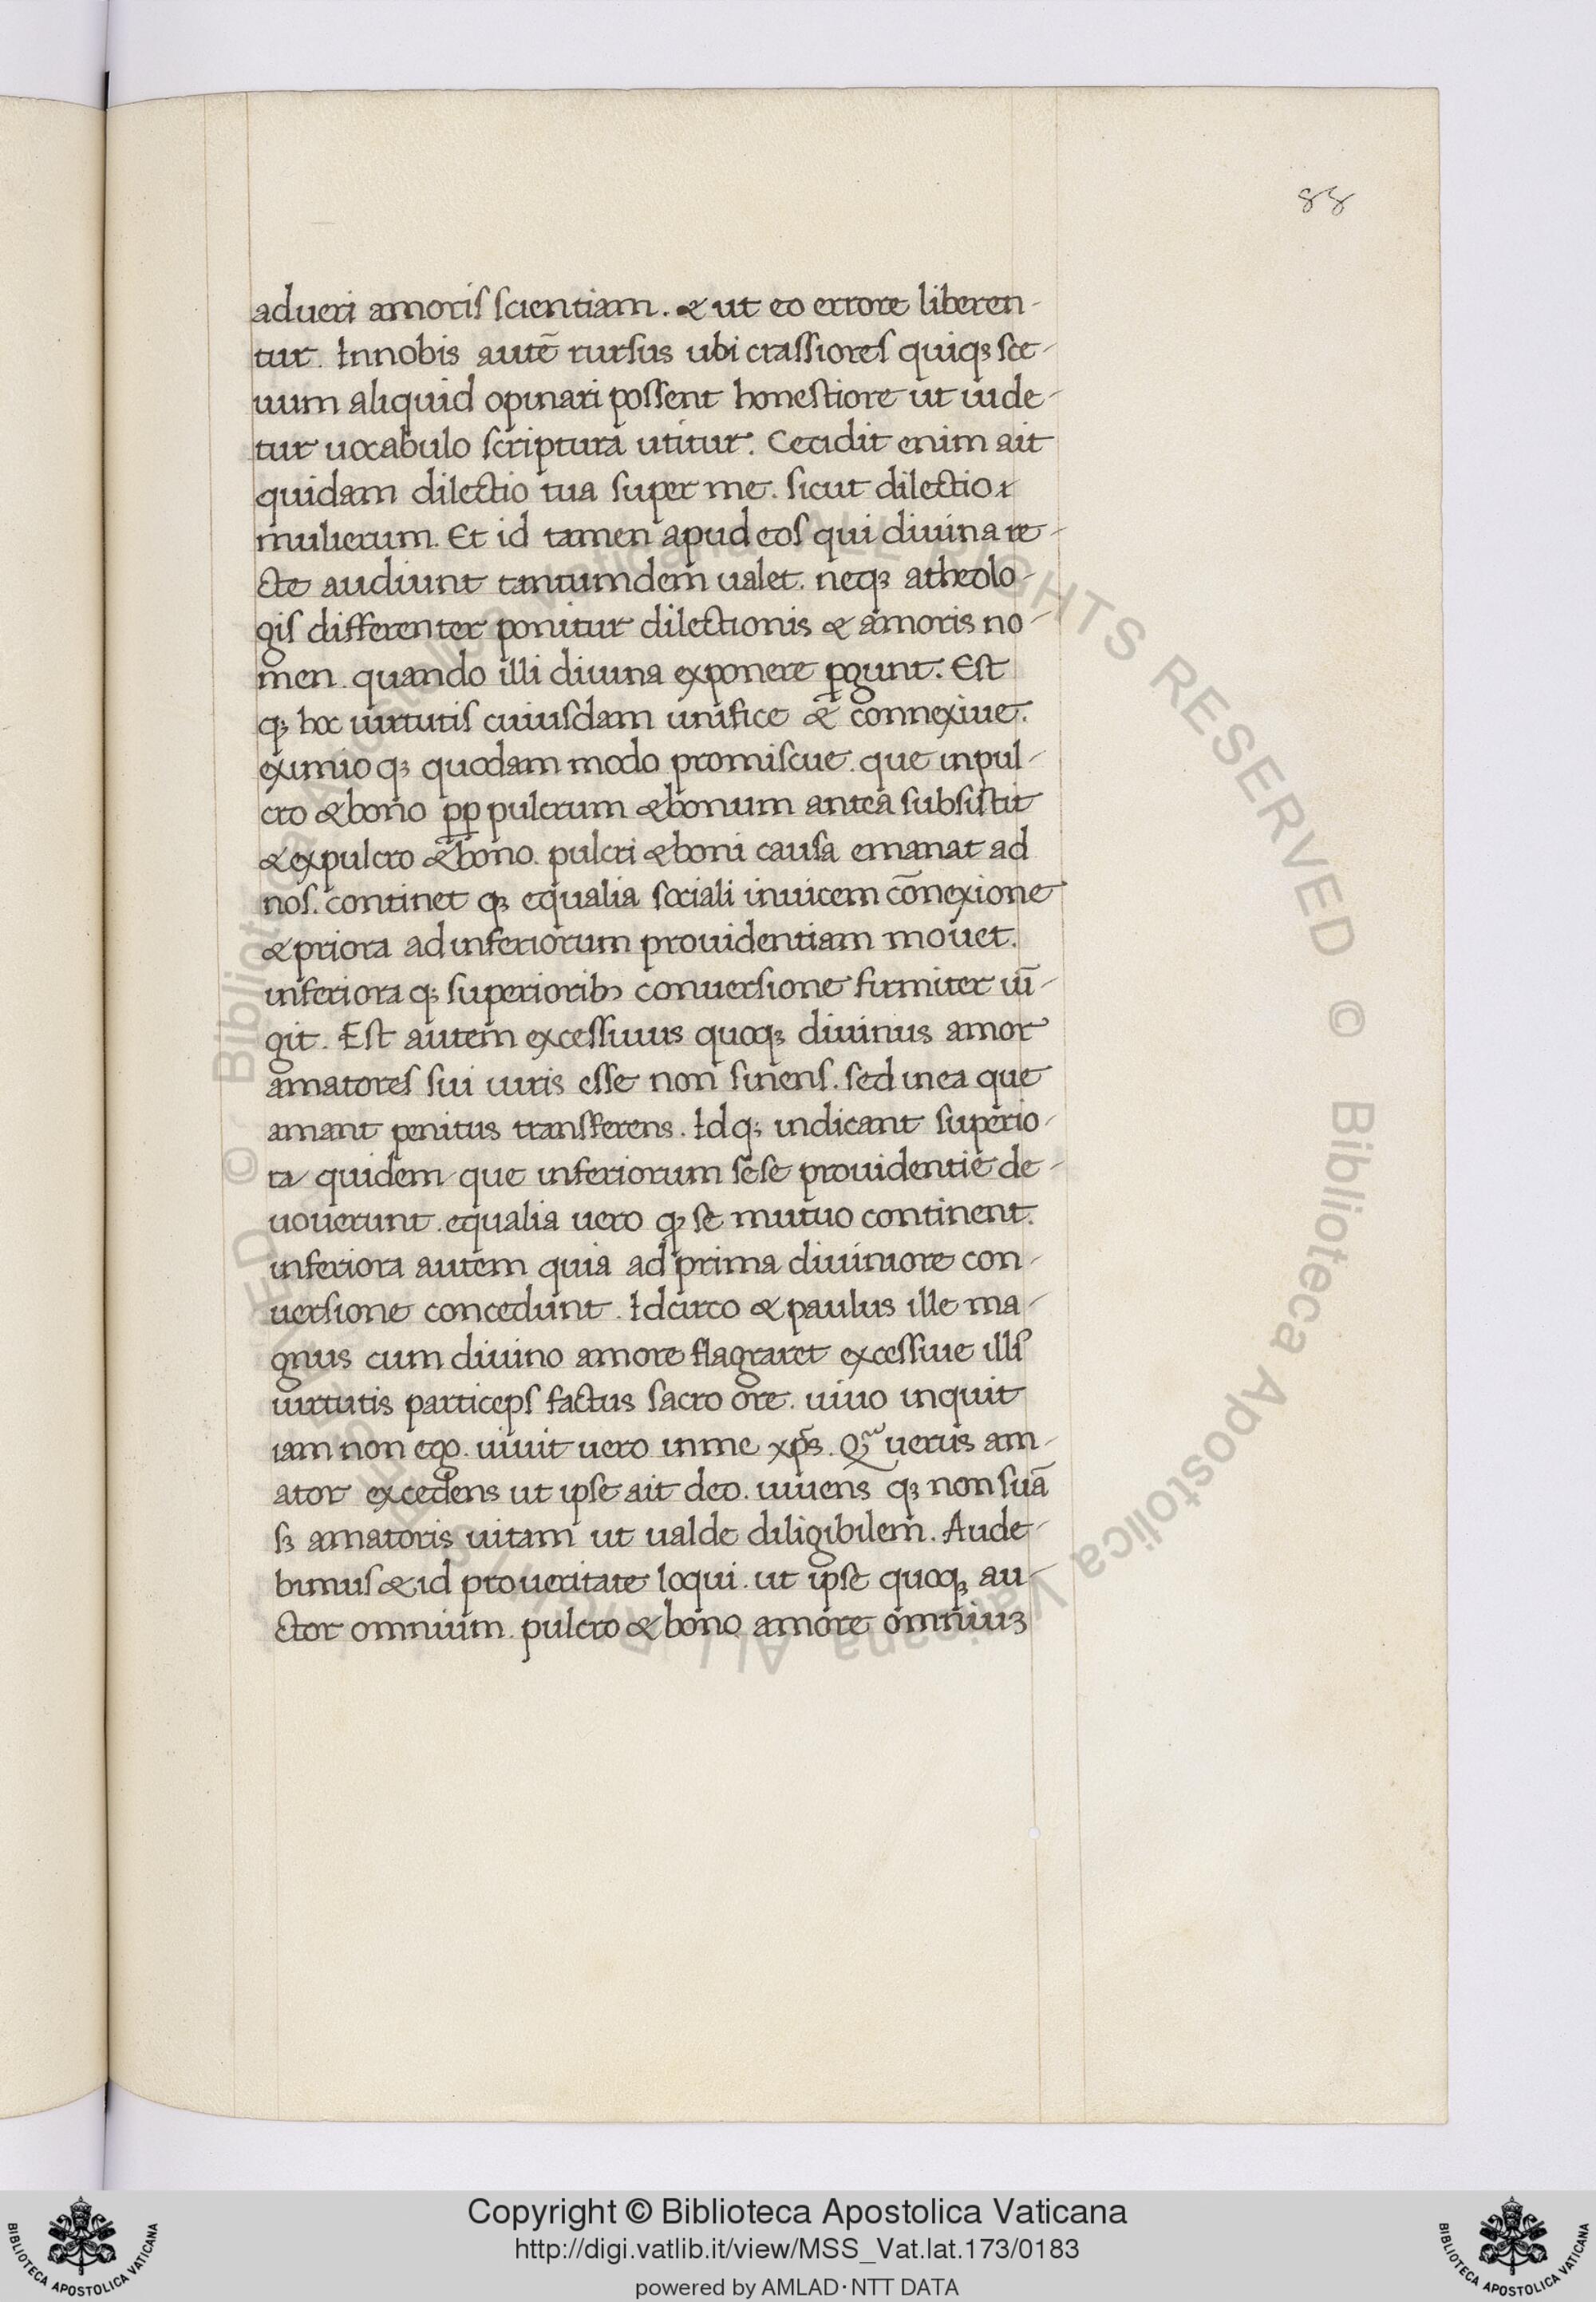 88
adueri amoris scientiam. & ut eo errore liberen-
tur. Innobis autē rursus ubi crassiores quiqꝫ sce-
uum aliquid opinari possent honestiore ut uide-
tur uocabulo scriptura utitur. Cecidit enim ait
quidam dilectio tua super me. sicut dilectio
mulierum. Et id tamen apud eos qui diuina re-
cte audiunt tantumdem ualet. neqꝫ atheolo-
gis differenter ponitur dilectionis & amoris no-
men. quando illi diuina exponere ꝑgunt. Est
qꝫ hoc uirtutis cuiusdam unifice & connexiue.
eximioqꝫ quodam modo promiscue. que inpul-
cro &bono ꝓꝑ pulcrum &bonum antea subsistit
&expulcro &bono. pulcri &boni causa emanat ad
nos. continet qꝫ equalia sociali inuicem cōnexione
&priora adinferiorum prouidentiam mouet.
inferioraqꝫ superioribꝫ conuersione firmiter iū-
git. Est autem excessiuus quoqꝫ diuinus amor
amatores sui iuris esse non sinens. sed inea que
amant penitus transferens. Idqꝫ indicant superio-
ra quidem que inferiorum sese prouidentie de-
uouerunt. equalia uero ꝙ se mutuo continent.
inferiora autem quia ad prima diuiniore con-
uersione concedunt. Idcirco & paulus ille ma-
gnus cum diuino amore flagraret excessiue illi
uirtutis particeps factus sacro ore. uiuo inquit
iam non ego. uiuit uero inme xp̄s. Qr uerus am-
ator excedens ut ipse ait deo. uiuens qꝫ non suā
sꝫ amatoris uitam ut ualde diligibilem. Aude-
bimus & id proueritate loqui. ut ipse quoqꝫ au-
ctor omnium. pulcro & bono amore omniuꝫ
© Biblioteca Apostolica Vaticana ALL RIGHTS RESERVED
© Biblioteca Apostolica Vaticana ALL RIGHTS RESERVED
Copyright © Biblioteca Apostolica Vaticana
http://digi.vatlib.it/view/MSS_Vat.lat.173/0183
powered by AMLAD·NTT DATA
BIBLIOTECA APOSTOLICA VATICANA
BIBLIOTECA APOSTOLICA VATICANA